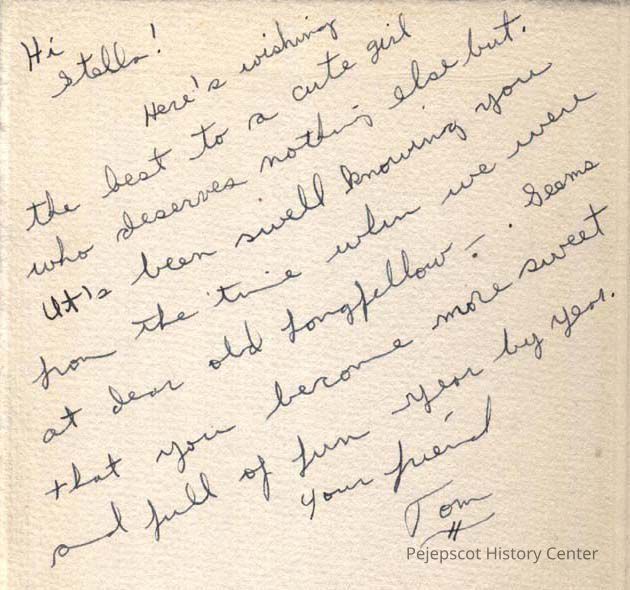 Hi
Stella!
Here's wishing
the best to a cute girl
who deserves nothing else but.
It's been swell knowing you
from the time when we were
at dear old Longfellow —. Seems
that you become more sweet
and full of fun year by year.
Your friend
Tom
Pejepscot History Center